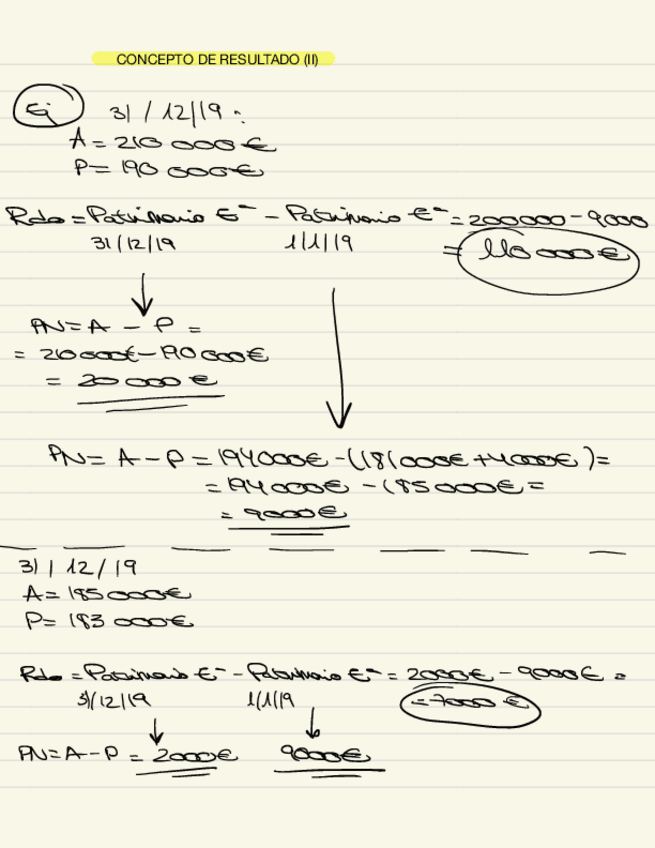 CONCEPTO DE RESULTADO (II)
Ej 31/12/19:
A = 210 000€
P = 190 000€
Rdo = Patrimonio Eª - Patrimonio Eª = 200000 - 9000
31/12/19 1/1/19 = 110 000€
PN = A - P =
= 210 000€ - 190 000€
= 20 000€
PN = A - P = 194000€ - (181000€ + 4000€) =
= 194000€ - (185000€ =
= 9000€
31/12/19
A = 185 000€
P = 183 000€
Rdo = Patrimonio Eª - Patrimonio Eª = 2000€ - 9000€ =
31/12/19 1/1/19 = -7000€
PN = A - P = 2000€ 9000€